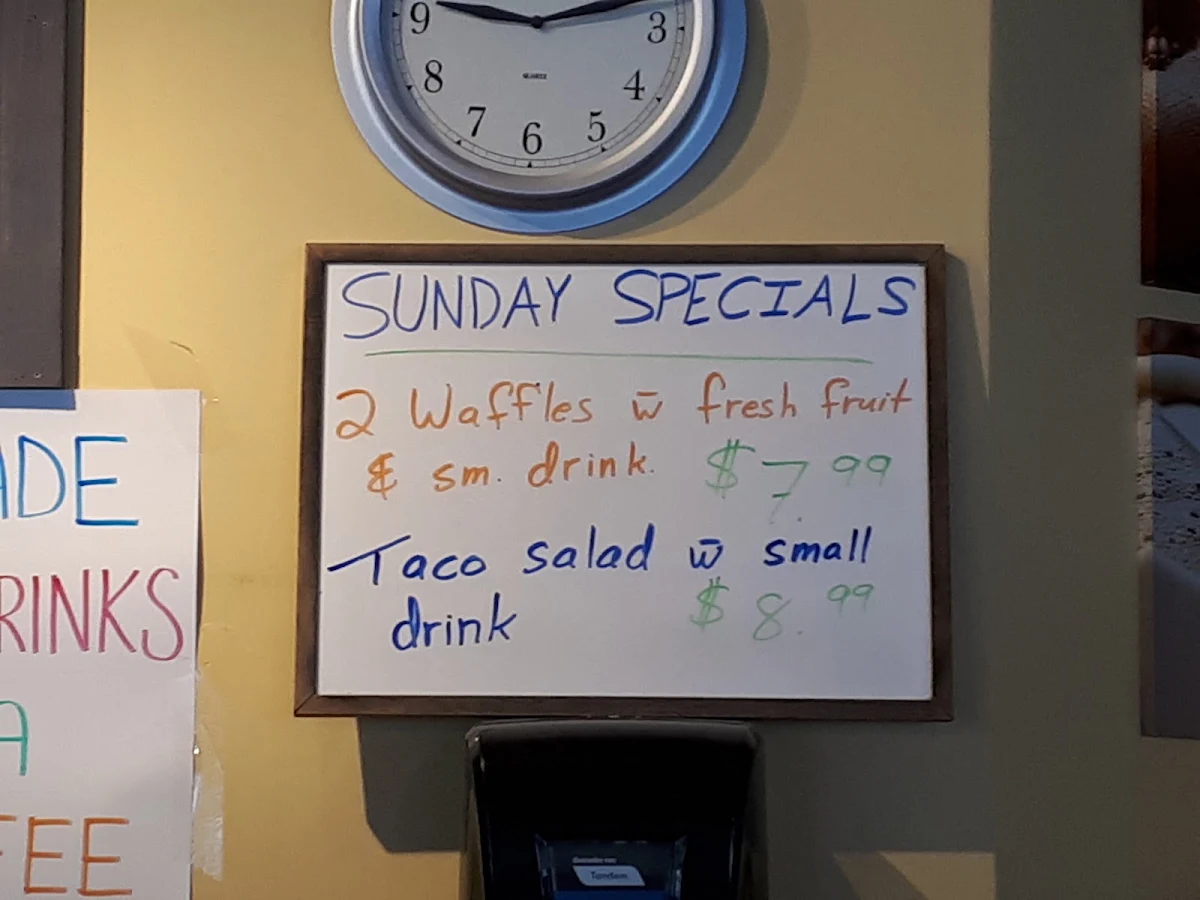 9
3
8
4
7
5
6
QUARTZ
SUNDAY SPECIALS
2 Waffles w̄ fresh fruit
& sm. drink. $7.99
Taco salad w̄ small
drink $8.99
ADE
RINKS
A
FEE
Tandem